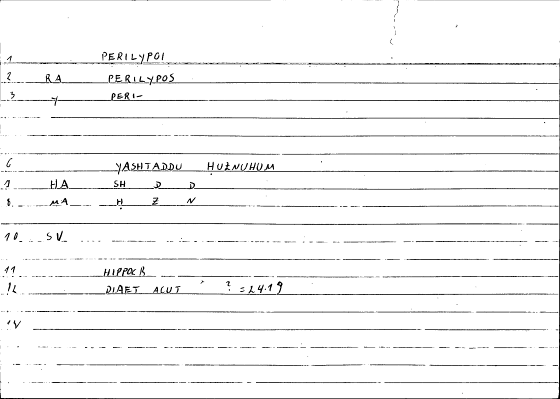 1 PERILYPOI
2 RA PERILYPOS
3 Y PERI-
6 YASHTADDU ḤUZNUHUM
7 HA SH D D
8 MA Ḥ Z N
10 SV
11 HIPPOCR
12 DIAET ACUT ? = 24.19
IV